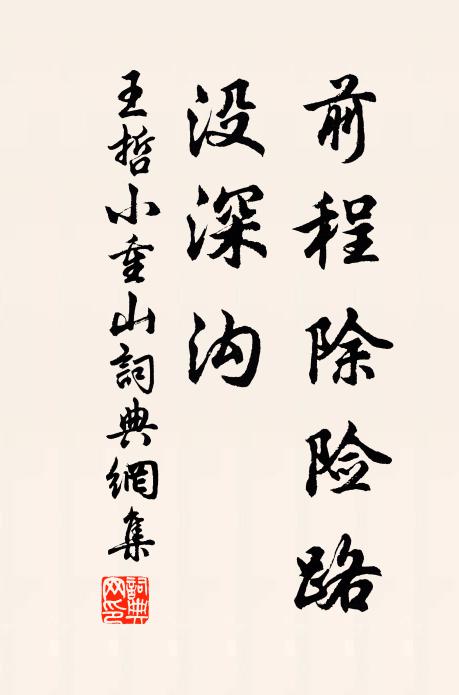 前程除险路
没深沟
王哲小重山詞典網集
詞典网印